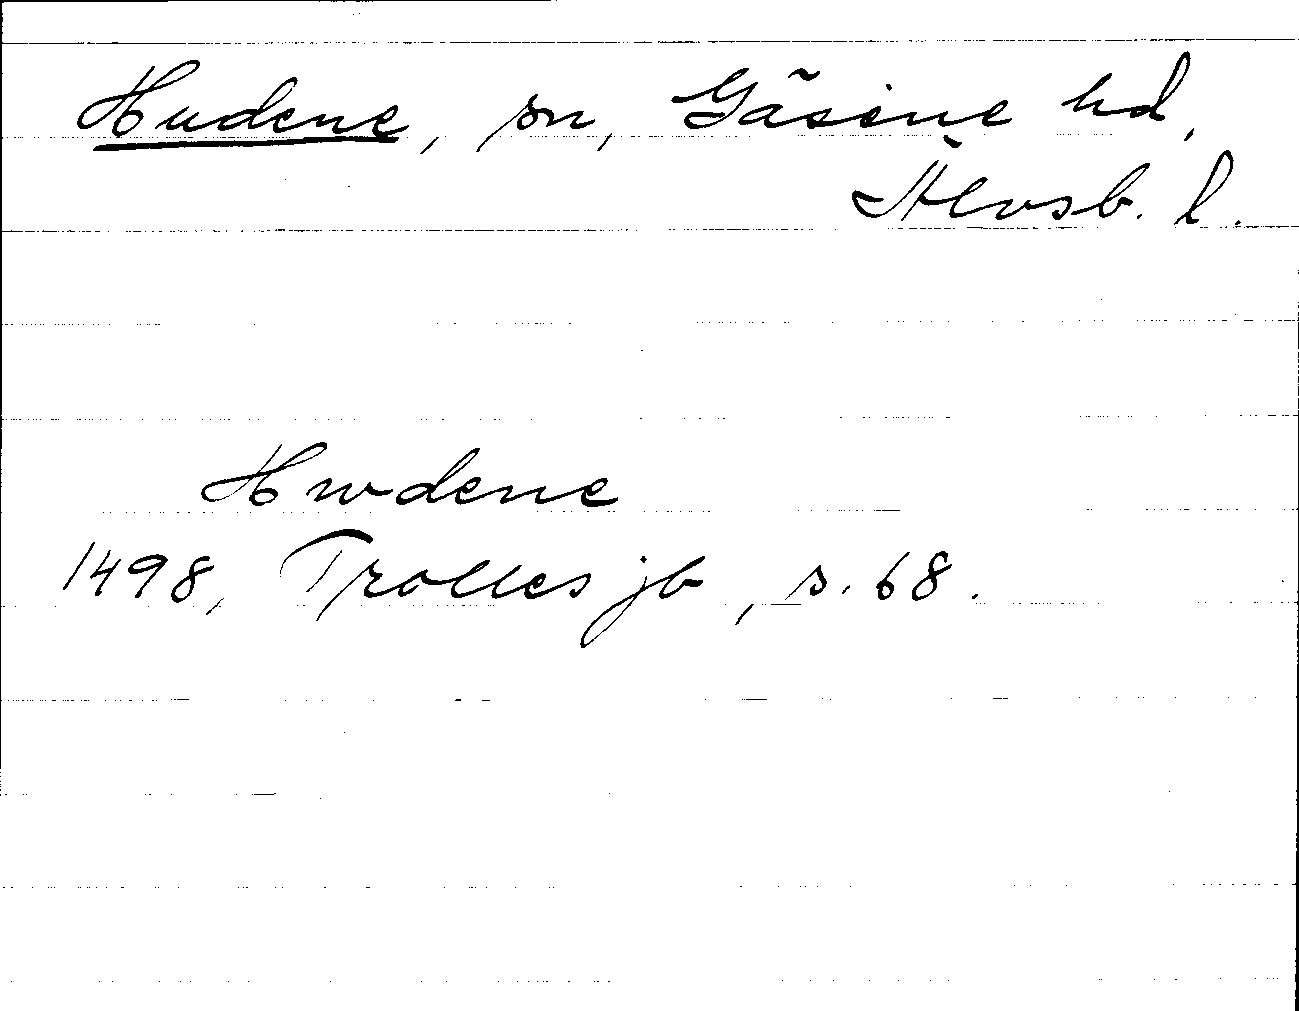 Hudene, sn, Gäsene hd,
Älvsb. l.
Hwdene
1498, Trolles jb, s. 68.